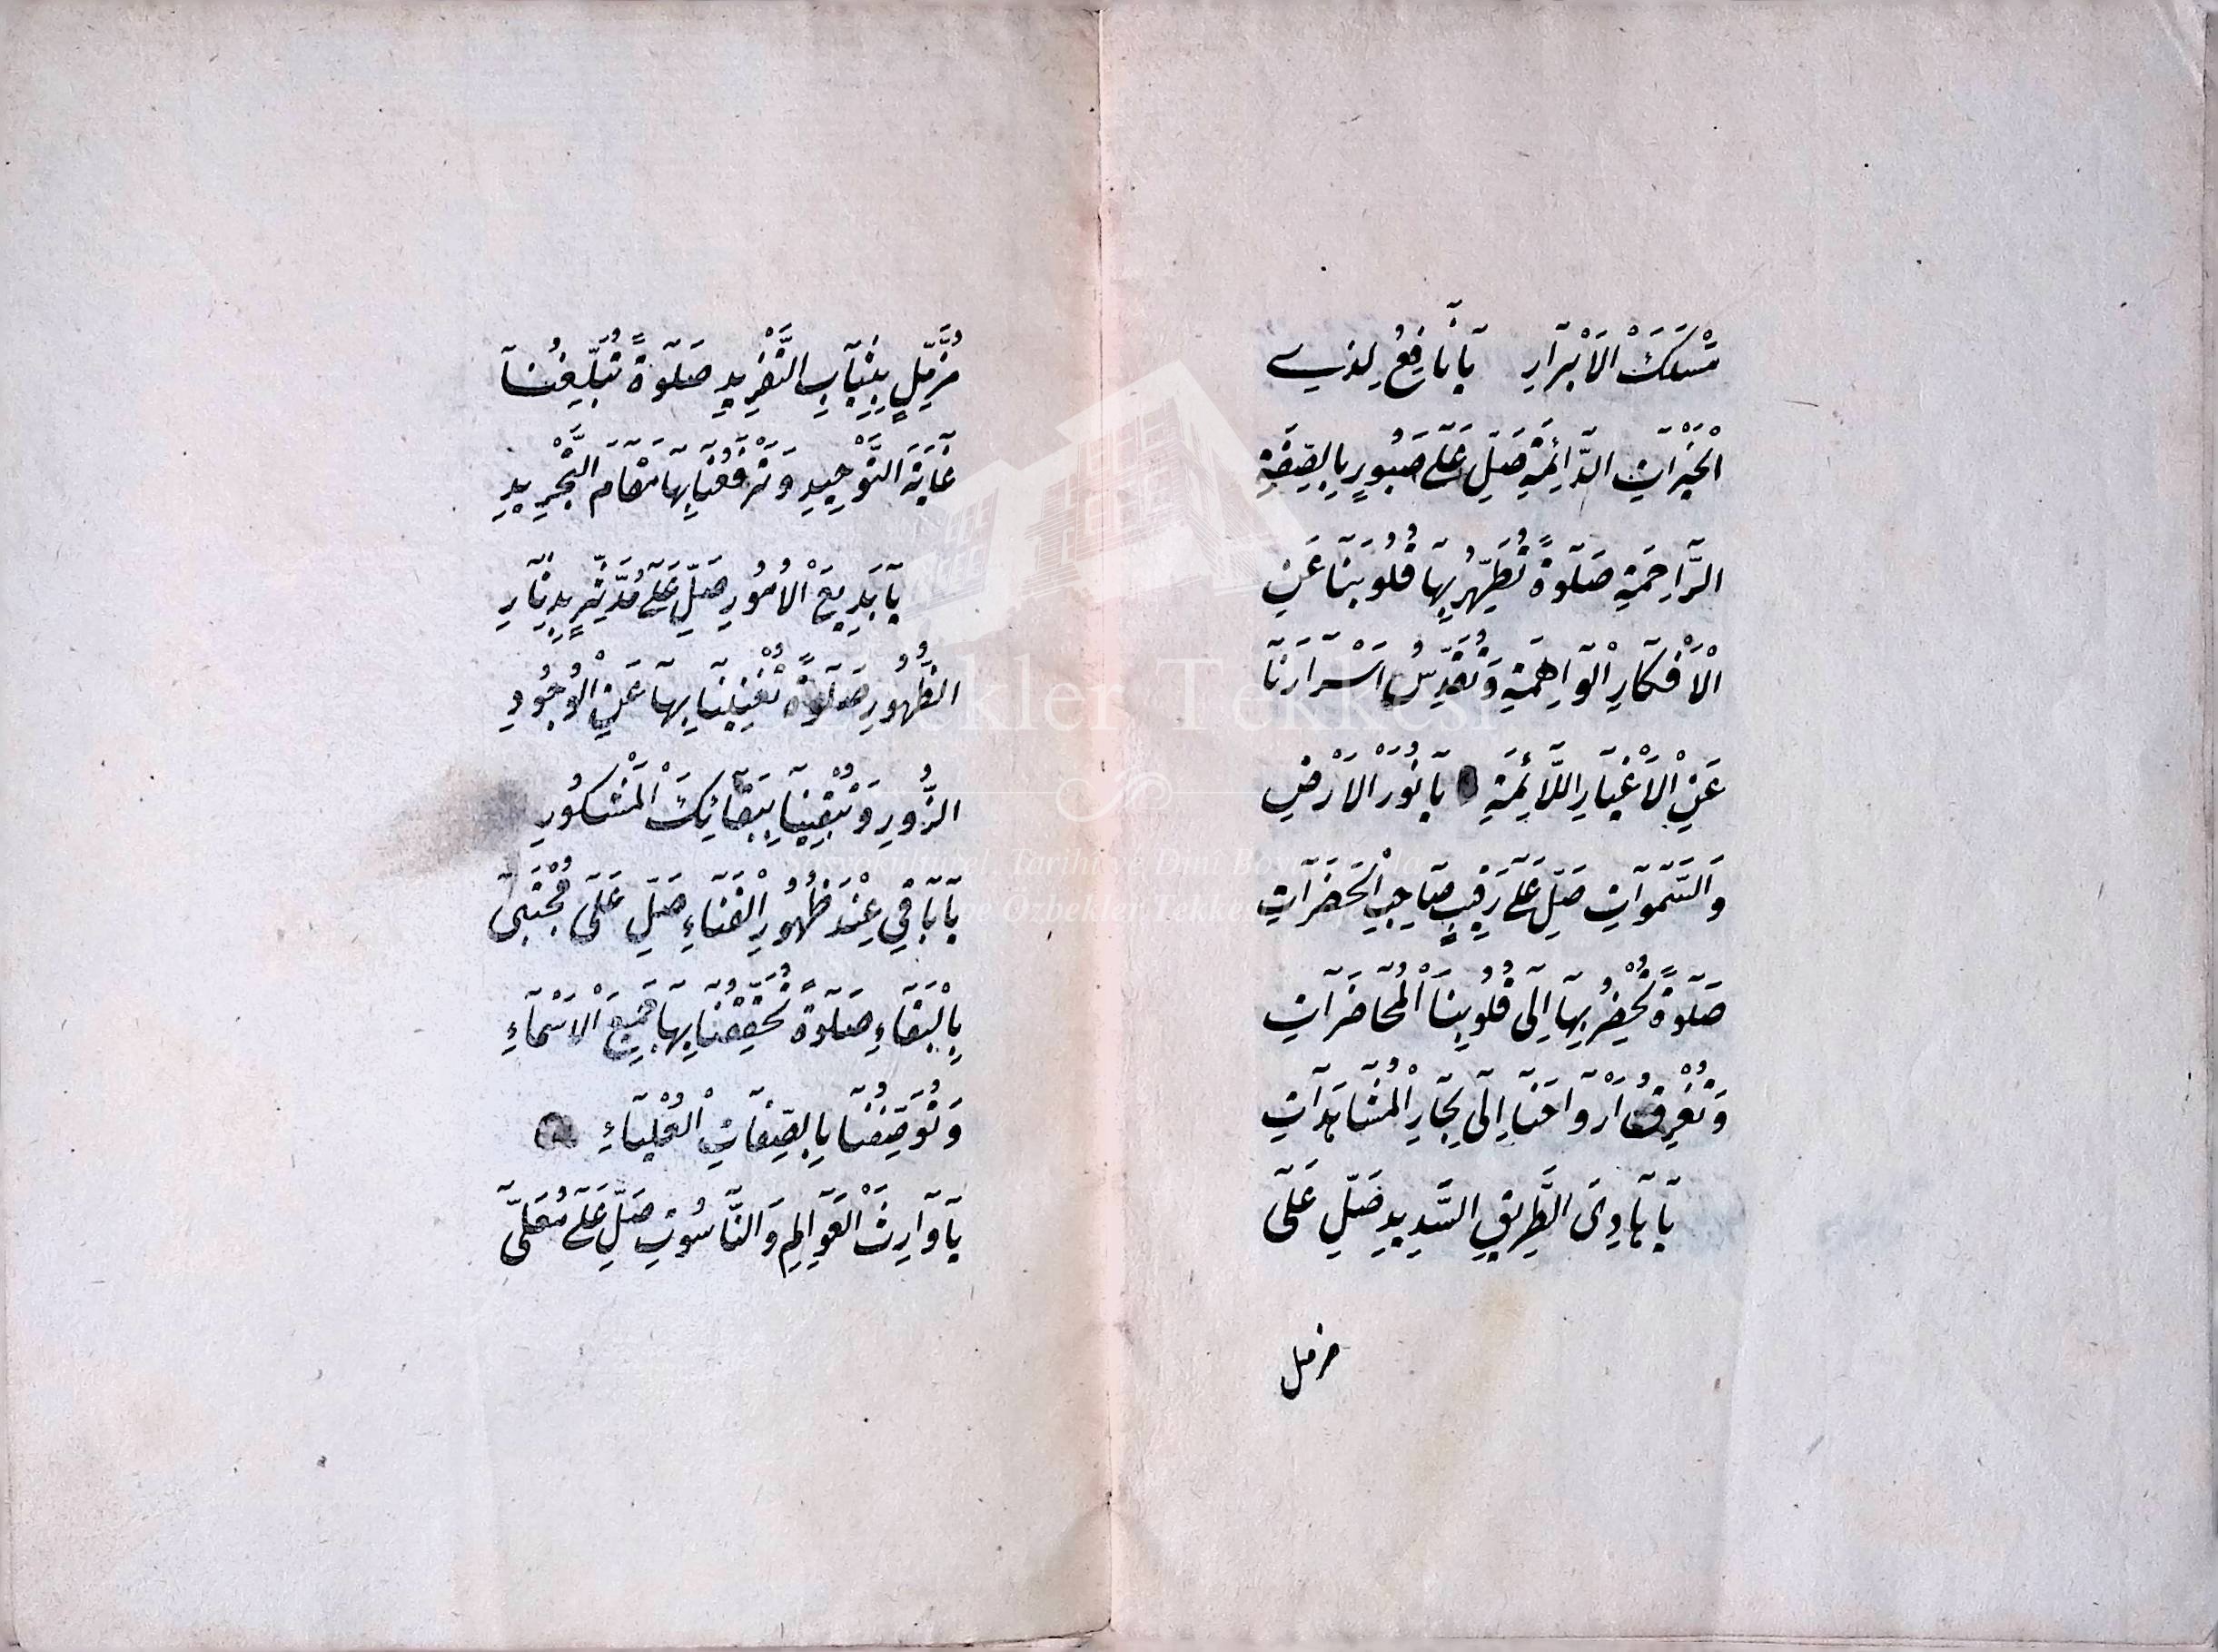 مَسْلَكَ الْاَبْرَارِ يَا نَافِعُ لِذِي
الْخَيْرَاتِ الدَّائِمَةِ صَلِّ عَلَى صَبُورٍ بِالصِّفَةِ
الرَّاحِمَةِ صَلَوةً تُطَهِّرُ بِهَا قُلُوبَنَا عَنِ
الْاَفْكَارِ الْوَاهِمَةِ وَتُقَدِّسُ اَسْرَارَنَا
عَنِ الْاَغْيَارِ اللَّائِمَةِ يَا نُورَ الْاَرْضِ
وَالسَّمَوَاتِ صَلِّ عَلَى رَقِيبٍ صَاحِبِ الْحَضَرَاتِ
صَلَوةً تُحْضِرُ بِهَا اِلَى قُلُوبِنَا الْمُحَاضَرَاتِ
وَتُغْرِقُ اَرْوَاحَنَا اِلَى بِحَارِ الْمُشَاهَدَاتِ
يَا هَادِىَ الطَّرِيقِ السَّدِيدِ صَلِّ عَلَى
مزمل
مُزَّمِّلٍ بِثِيَابِ التَّفْرِيدِ صَلَوةً تُبَلِّغُنَا
غَايَةَ التَّوْحِيدِ وَتَرْفَعُنَا بِهَا مَقَامَ التَّجْرِيدِ
يَا بَدِيعَ الْاُمُورِ صَلِّ عَلَى مُدَّثِّرٍ بِدِثَارِ
الظُّهُورِ صَلَوةً تُفْنِينَا بِهَا عَنِ الْوُجُودِ
الزُّورِ وَتُبْقِينَا بِبَقَائِكَ الْمَشْكُورِ
يَا بَاقِي عِنْدَ ظُهُورِ الْفَنَاءِ صَلِّ عَلَى مُجْتَبَى
بِالْبَقَاءِ صَلَوةً تُحَقِّقُنَا بِهَا جَمِيعَ الْاَسْمَاءِ
وَتُوَصِّفُنَا بِالصِّفَاتِ الْعُلْيَاءِ
يَا وَارِثَ الْعَوَالِمِ وَالنَّاسُوتِ صَلِّ عَلَى مُعَلَّى
Tekkesi